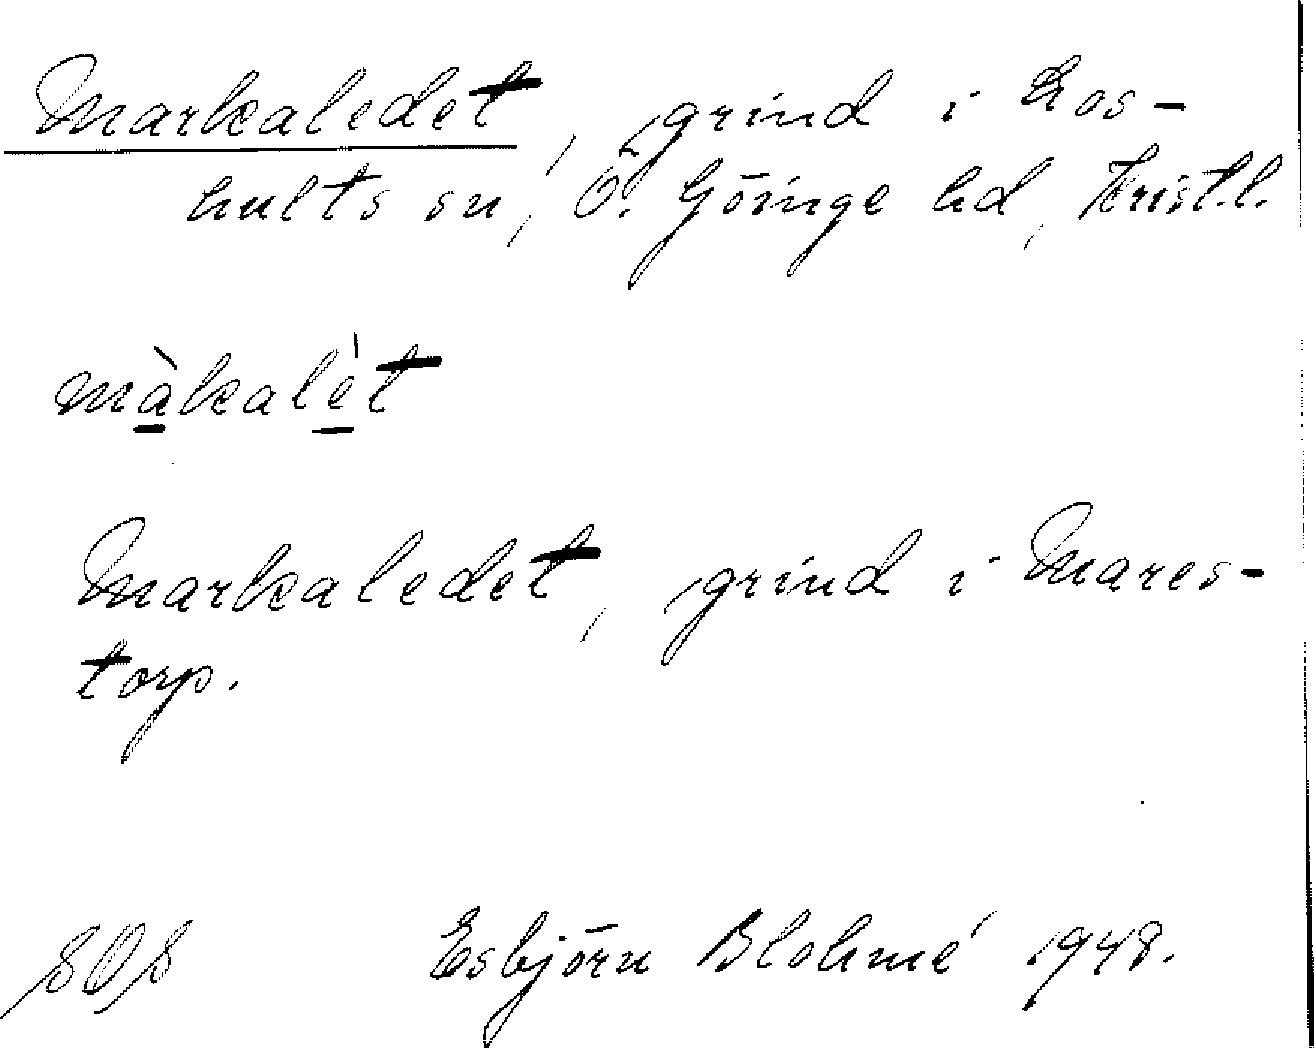 Markaledet, grind i Los-
hults sn, Ö. Göinge hd, Krist.l.
màkalèt
Markaledet, grind i Mares-
torp.
SOS Esbjörn Blohmé 1948.